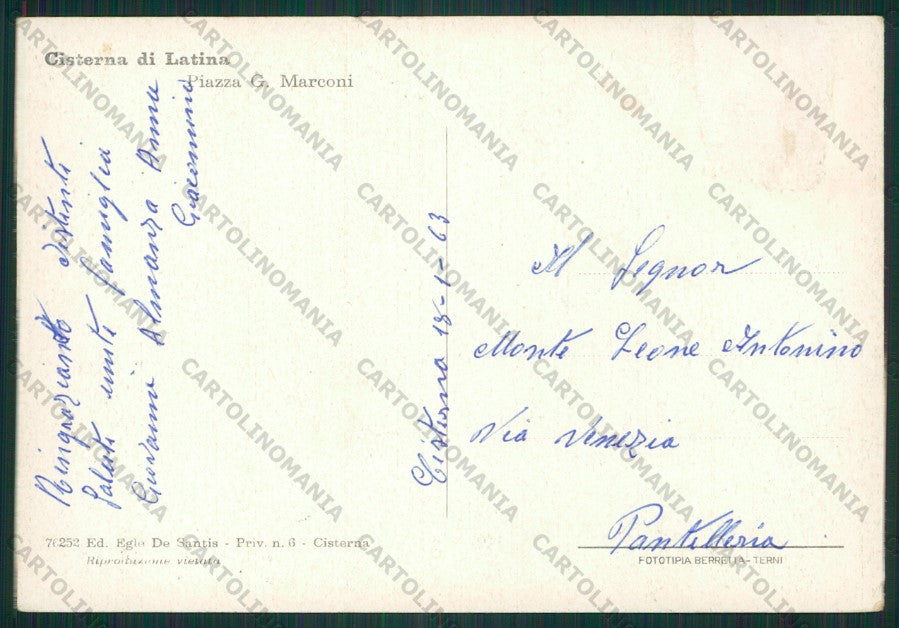 Cisterna di Latina
Piazza G. Marconi
Ringraziando distinti
saluti uniti famiglia
Giovanni Almanza Anna
Giacomino
Cisterna 18-1-63
Al Signor
Monte Leone Antonino
Via Venezia
Pantelleria
76252 Ed. Egle De Santis - Priv. n. 6 - Cisterna
Riproduzione vietata
FOTOTIPIA BERRETTA - TERNI
CARTOLINOMANIA